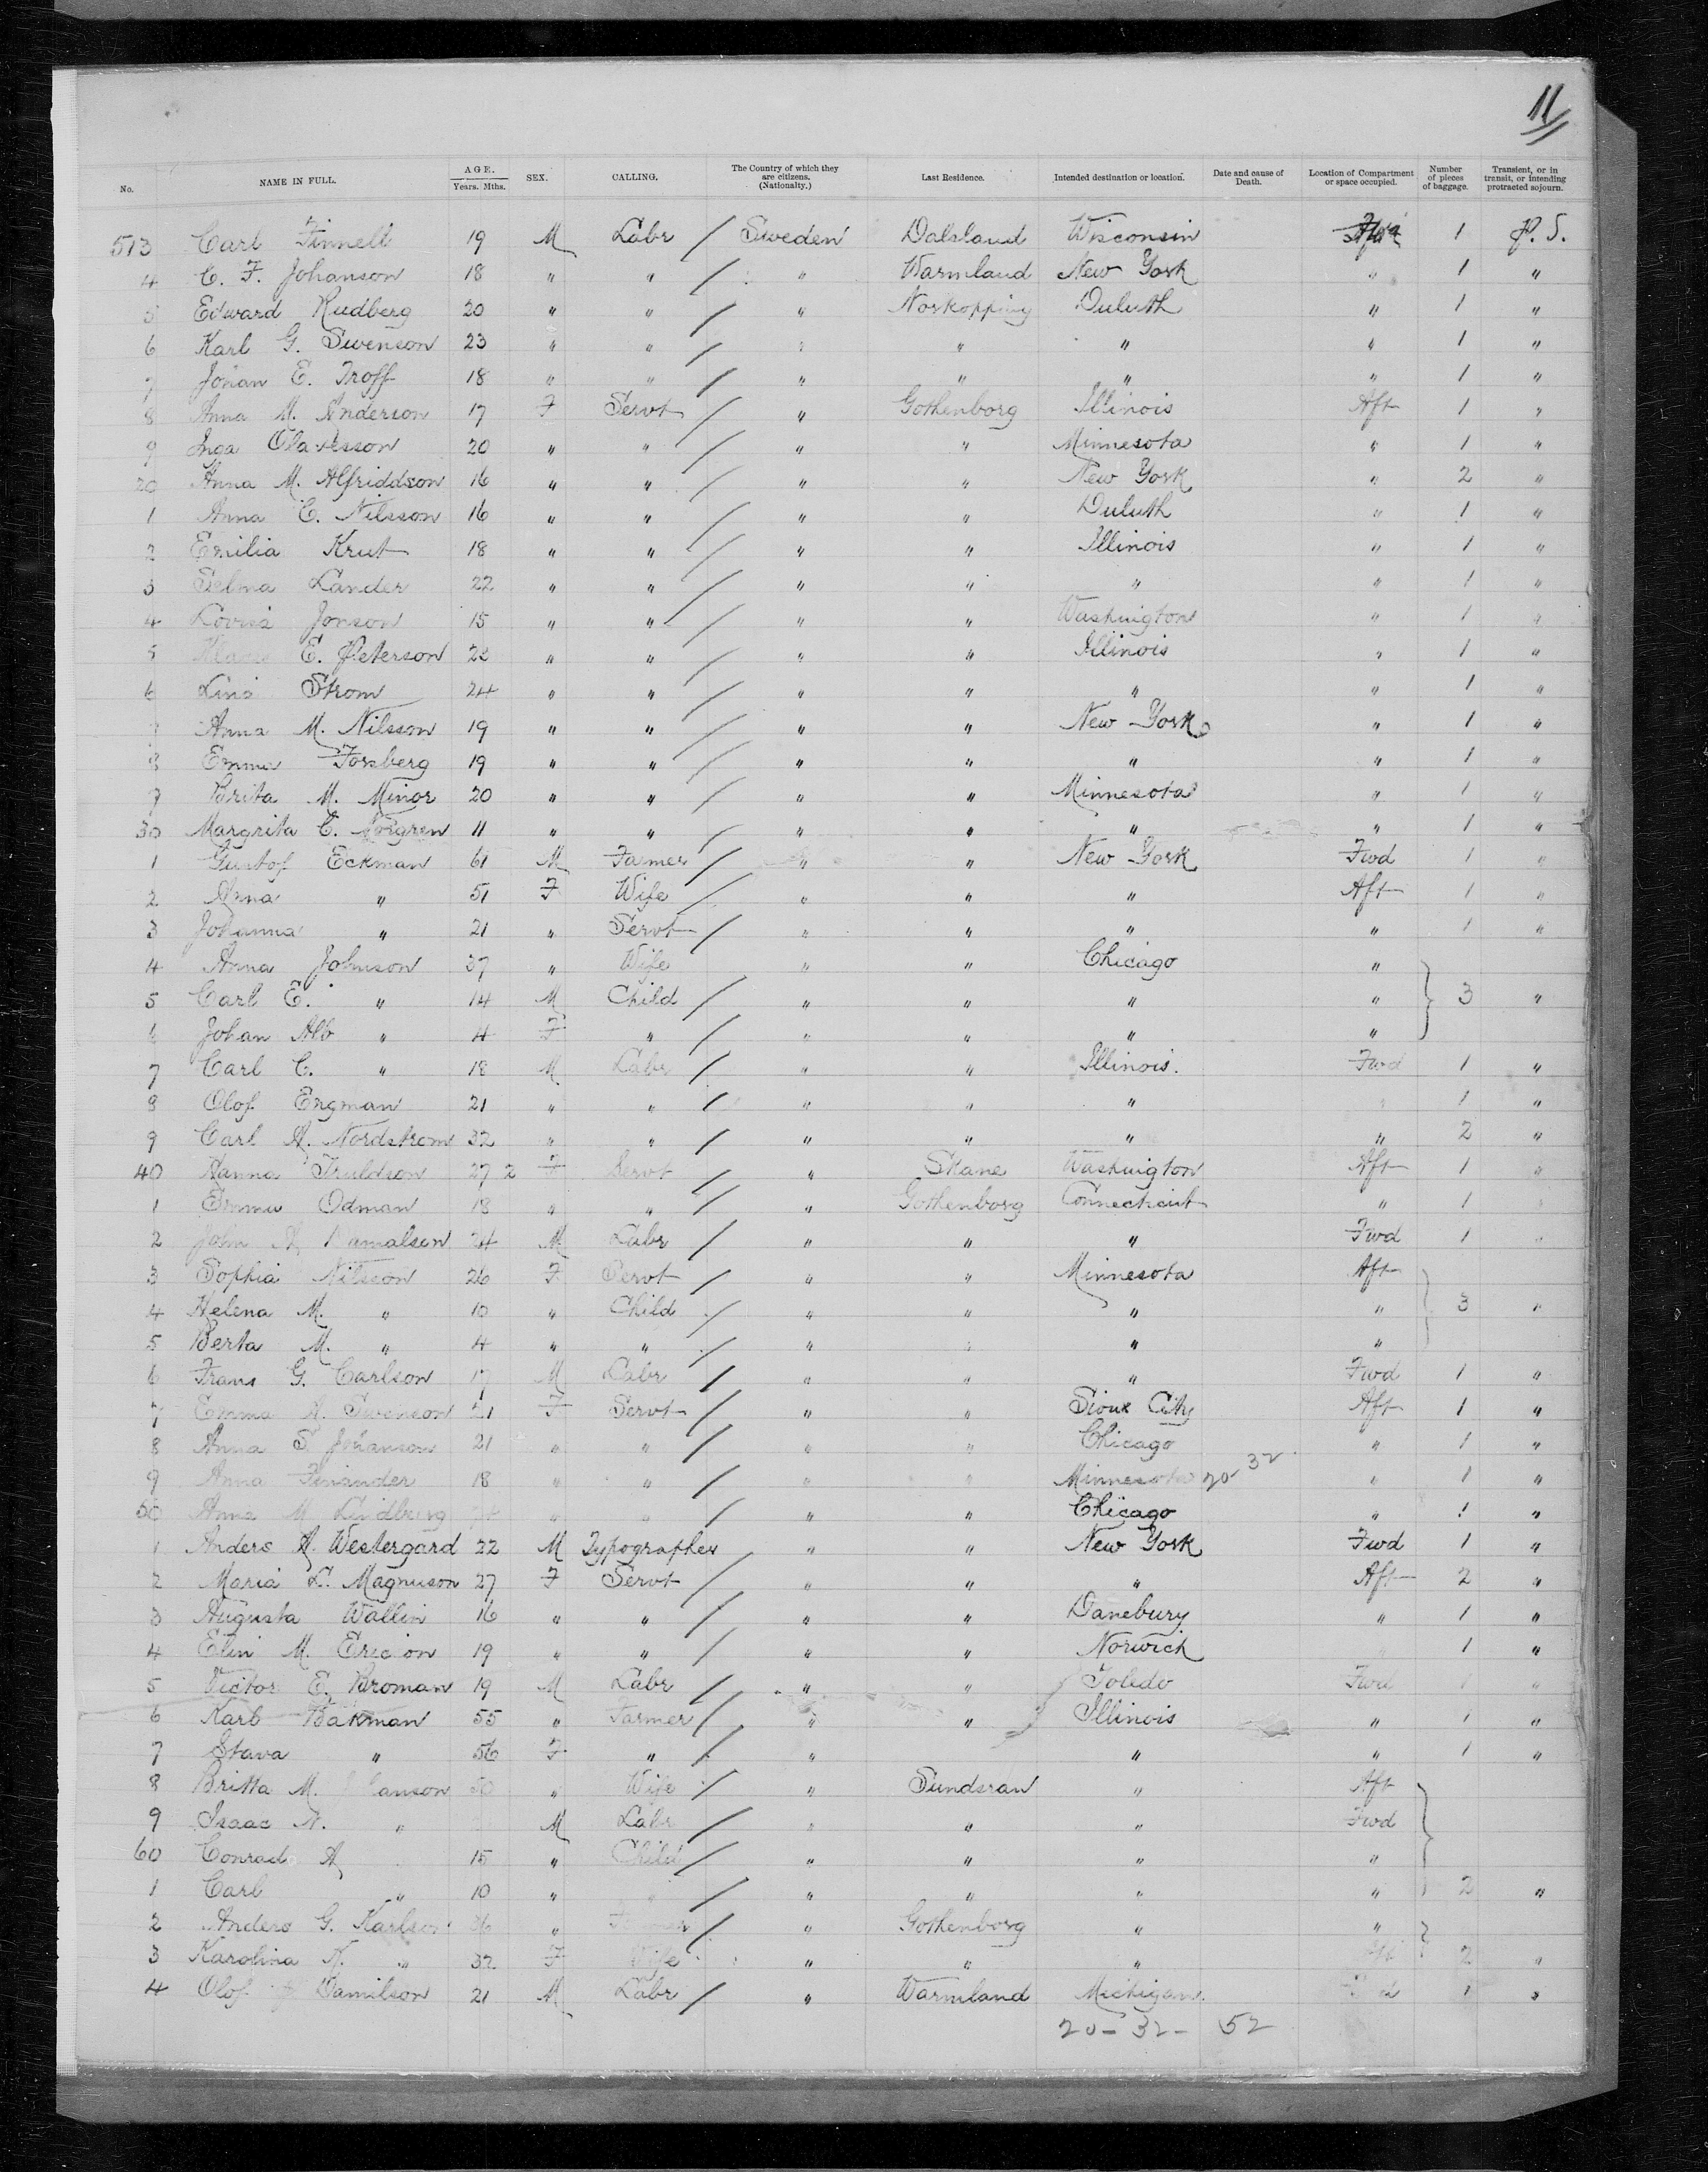 11
No. NAME IN FULL. AGE. Years. Mths. SEX. CALLING. The Country of which they are citizens. (Nationalty.) Last Residence. Intended destination or location. Date and cause of Death. Location of Compartment or space occupied. Number of pieces of baggage. Transient, or in transit, or intending protracted sojourn.
513 Carl Finnell 19 M Labr / Sweden Dalsland Wisconsin 1 P. S.
4 C. F. Johanson 18 " " / " Warmland New York " 1 "
5 Edward Rudberg 20 " " / " Norkopping Duluth " 1 "
6 Karl G. Swenson 23 " " / " " " " 1 "
7 Johan E. Troff 18 " " / " " " " 1 "
8 Anna M. Anderson 17 F Servt / " Gothenborg Illinois Aft 1 "
9 Inga Olavesson 20 " " / " " Minnesota " 1 "
20 Anna M. Alfriddson 16 " " / " " New York " 2 "
1 Anna C. Nilsson 16 " " / " " Duluth " 1 "
2 Emilia Krut 18 " " / " " Illinois " 1 "
3 Selma Lander 22 " " / " " " " 1 "
4 Lovisa Jonson 15 " " / " " Washington " 1 "
5 E. Peterson 22 " " / " " Illinois " 1 "
6 Lina Strom 24 " " / " " " " 1 "
7 Anna M. Nilsson 19 " " / " " New York " 1 "
8 Emma Forsberg 19 " " / " " " " 1 "
9 Brita M. Minor 20 " " / " " Minnesota " 1 "
30 Margrita C. Norgren 11 " " / " " " " 1 "
1 Gustof Eckman 61 M Famer / " " New York Fwd 1 "
2 Anna " 51 F Wife / " " " Aft 1 "
3 Johanna " 21 " Servt / " " " " 1 "
4 Anna Johnson 37 " Wife " " Chicago "
5 Carl E. " 14 M Child / " " " " 3 "
6 Johan Alb " 4 F " / " " " "
7 Carl C. " 18 M Labr / " " Illinois. Fwd 1 "
8 Olof Engman 21 " " / " " " " 1 "
9 Carl A. Nordstrom 32 " " / " " " " 2 "
40 Hanna Truldson 27 2 F Servt / " Skane Washington Aft 1 "
1 Emma Odman 18 " " / " Gothenborg Connecticut " 1
2 John A. 24 M Labr / " " " Fwd 1 "
3 Sophia Nilsson 26 F Servt / " " Minnesota Aft
4 Helena M. " 10 " Child / " " " " 3 "
5 Berta M. " 4 " " / " " " "
6 Frans G. Carlson 17 M Labr / " " " Fwd 1 "
7 Emma A. Swenson 21 F Servt / " " Sioux City Aft 1 "
8 Anna S. Johanson 21 " " / " " Chicago " 1 "
9 Anna Finander 18 " " / " " Minnesota 20-32 " 1 "
50 Anna M Lindberg " " / " " Chicago " 1 "
1 Anders A. Westergard 22 M Typographer " " New York Fwd 1 "
2 Maria L. Magnuson 27 F Servt / " " " Aft 2 "
3 Augusta Wallin 16 " " / " " Danebury " 1 "
4 Elin M. Ericson 19 " " / " " Norwich 1 "
5 Victor E. Broman 19 M Labr / " " Toledo Fwd 1 "
6 Karl Bakman 55 " Farmer / " " Illinois " 1 "
7 Stava " 56 F " / " " " 1 "
8 Britta M. 50 " Wife / " Sundsran " Aft
9 Isaac N. " M Labr / " " " Fwd
60 Conrad A 15 " Child / " " " "
1 Carl " 10 " / " " " " 2 "
2 Anders G. Karlson 36 " Farmer / " Gothenborg " "
3 Karolina K. " 32 F Wife " " " 2 "
4 Olof Damilson 21 M Labr / " Warmland Michigan. 1 "
20 - 32 - 52